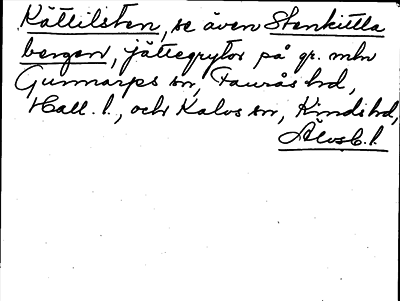 Kättilsten, se även Stenkittla
bergen, jättegrytor på gr. mln
Gunnarps sn, Faurås hd,
Hall. l., och Kalvs sn, Kinds hd,
Älvsb. l.